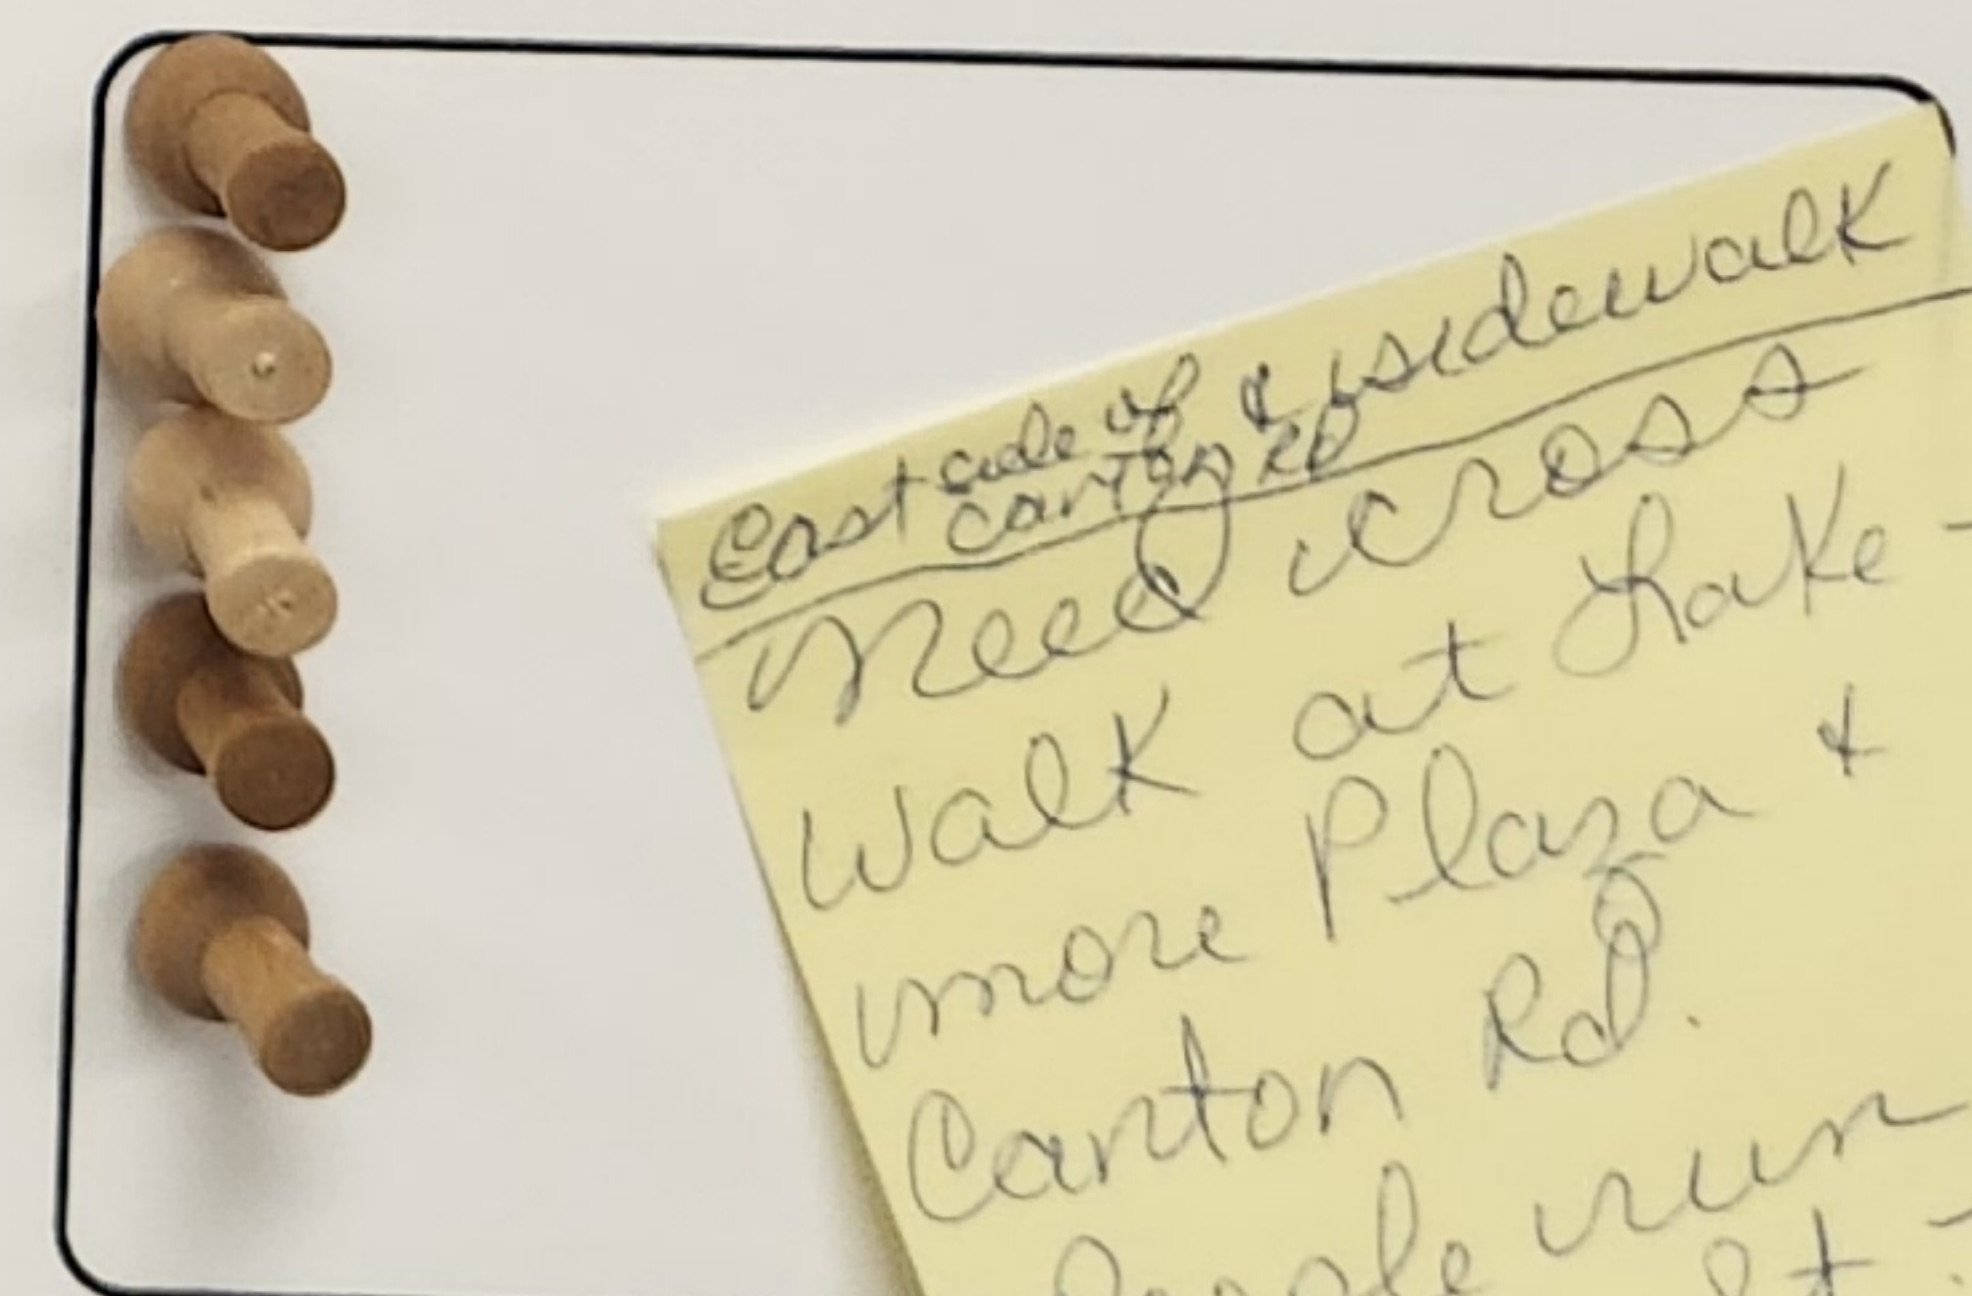 East side of & sidewalk
Canton RD
Need cross
walk at Lake -
more Plaza &
Canton Rd.
People run